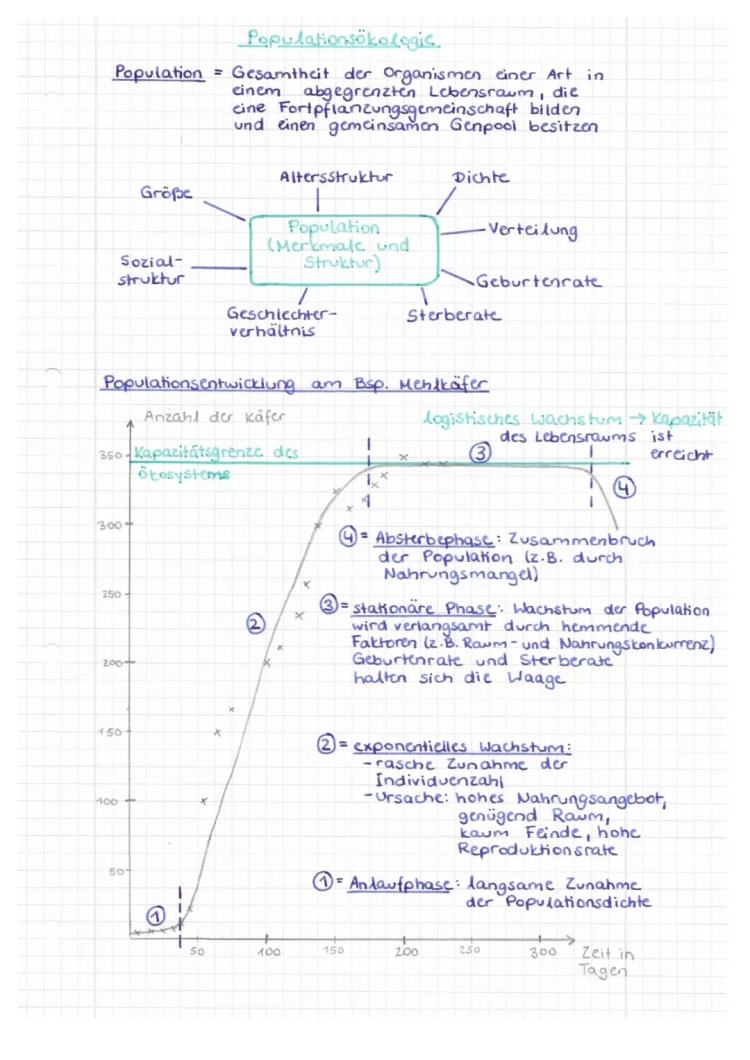 Populationsökologie
Population = Gesamtheit der Organismen einer Art in
einem abgegrenzten Lebensraum, die
eine Fortpflanzungsgemeinschaft bilden
und einen gemeinsamen Genpool besitzen
Altersstruktur
Dichte
Größe
Population
(Merkmale und
Struktur)
Verteilung
Sozial-
struktur
Geburtenrate
Geschlechter-
verhältnis
Sterberate
Populationsentwicklung am Bsp. Mehlkäfer
Anzahl der Käfer
logistisches Wachstum → Kapazität
des Lebensraums ist
erreicht
350
Kapazitätsgrenze des
Ökosystems
3
4
300
4 = Absterbephase: Zusammenbruch
der Population (z.B. durch
Nahrungsmangel)
250
3 = stationäre Phase: Wachstum der Population
wird verlangsamt durch hemmende
Faktoren (z.B. Raum- und Nahrungskonkurrenz)
Geburtenrate und Sterberate
halten sich die Waage
2
200
150
2 = exponentielles Wachstum:
- rasche Zunahme der
Individuenzahl
- Ursache: hohes Nahrungsangebot,
genügend Raum,
kaum Feinde, hohe
Reproduktionsrate
100
50
1 = Anlaufphase: langsame Zunahme
der Populationsdichte
1
50 100 150 200 250 300 Zeit in
Tagen